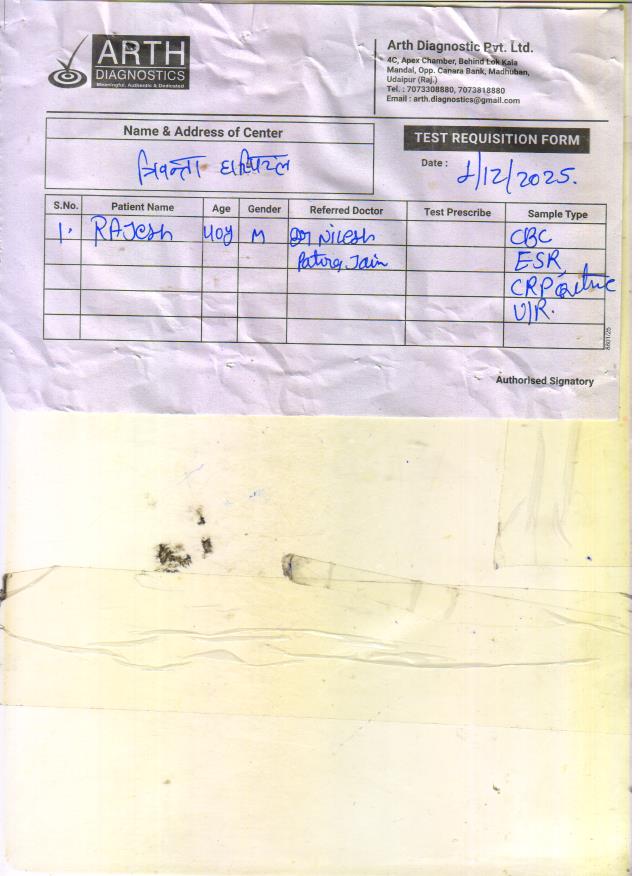 ARTH
DIAGNOSTICS
Meaningful, Authentic & Dedicated
Arth Diagnostic Pvt. Ltd.
4C, Apex Chamber, Behind Lok Kala
Mandal, Opp. Canara Bank, Madhuban,
Udaipur (Raj.)
Tel. : 7073308880, 7073818880
Email : arth.diagnostics@gmail.com
Name & Address of Center
TEST REQUISITION FORM
Date : 1/12/2025.
S.No. Patient Name Age Gender Referred Doctor Test Prescribe Sample Type
1. RAJesh 40y M Dr Nilesh CBC
Jain ESR,
CRP
U/R.
8801/25
Authorised Signatory